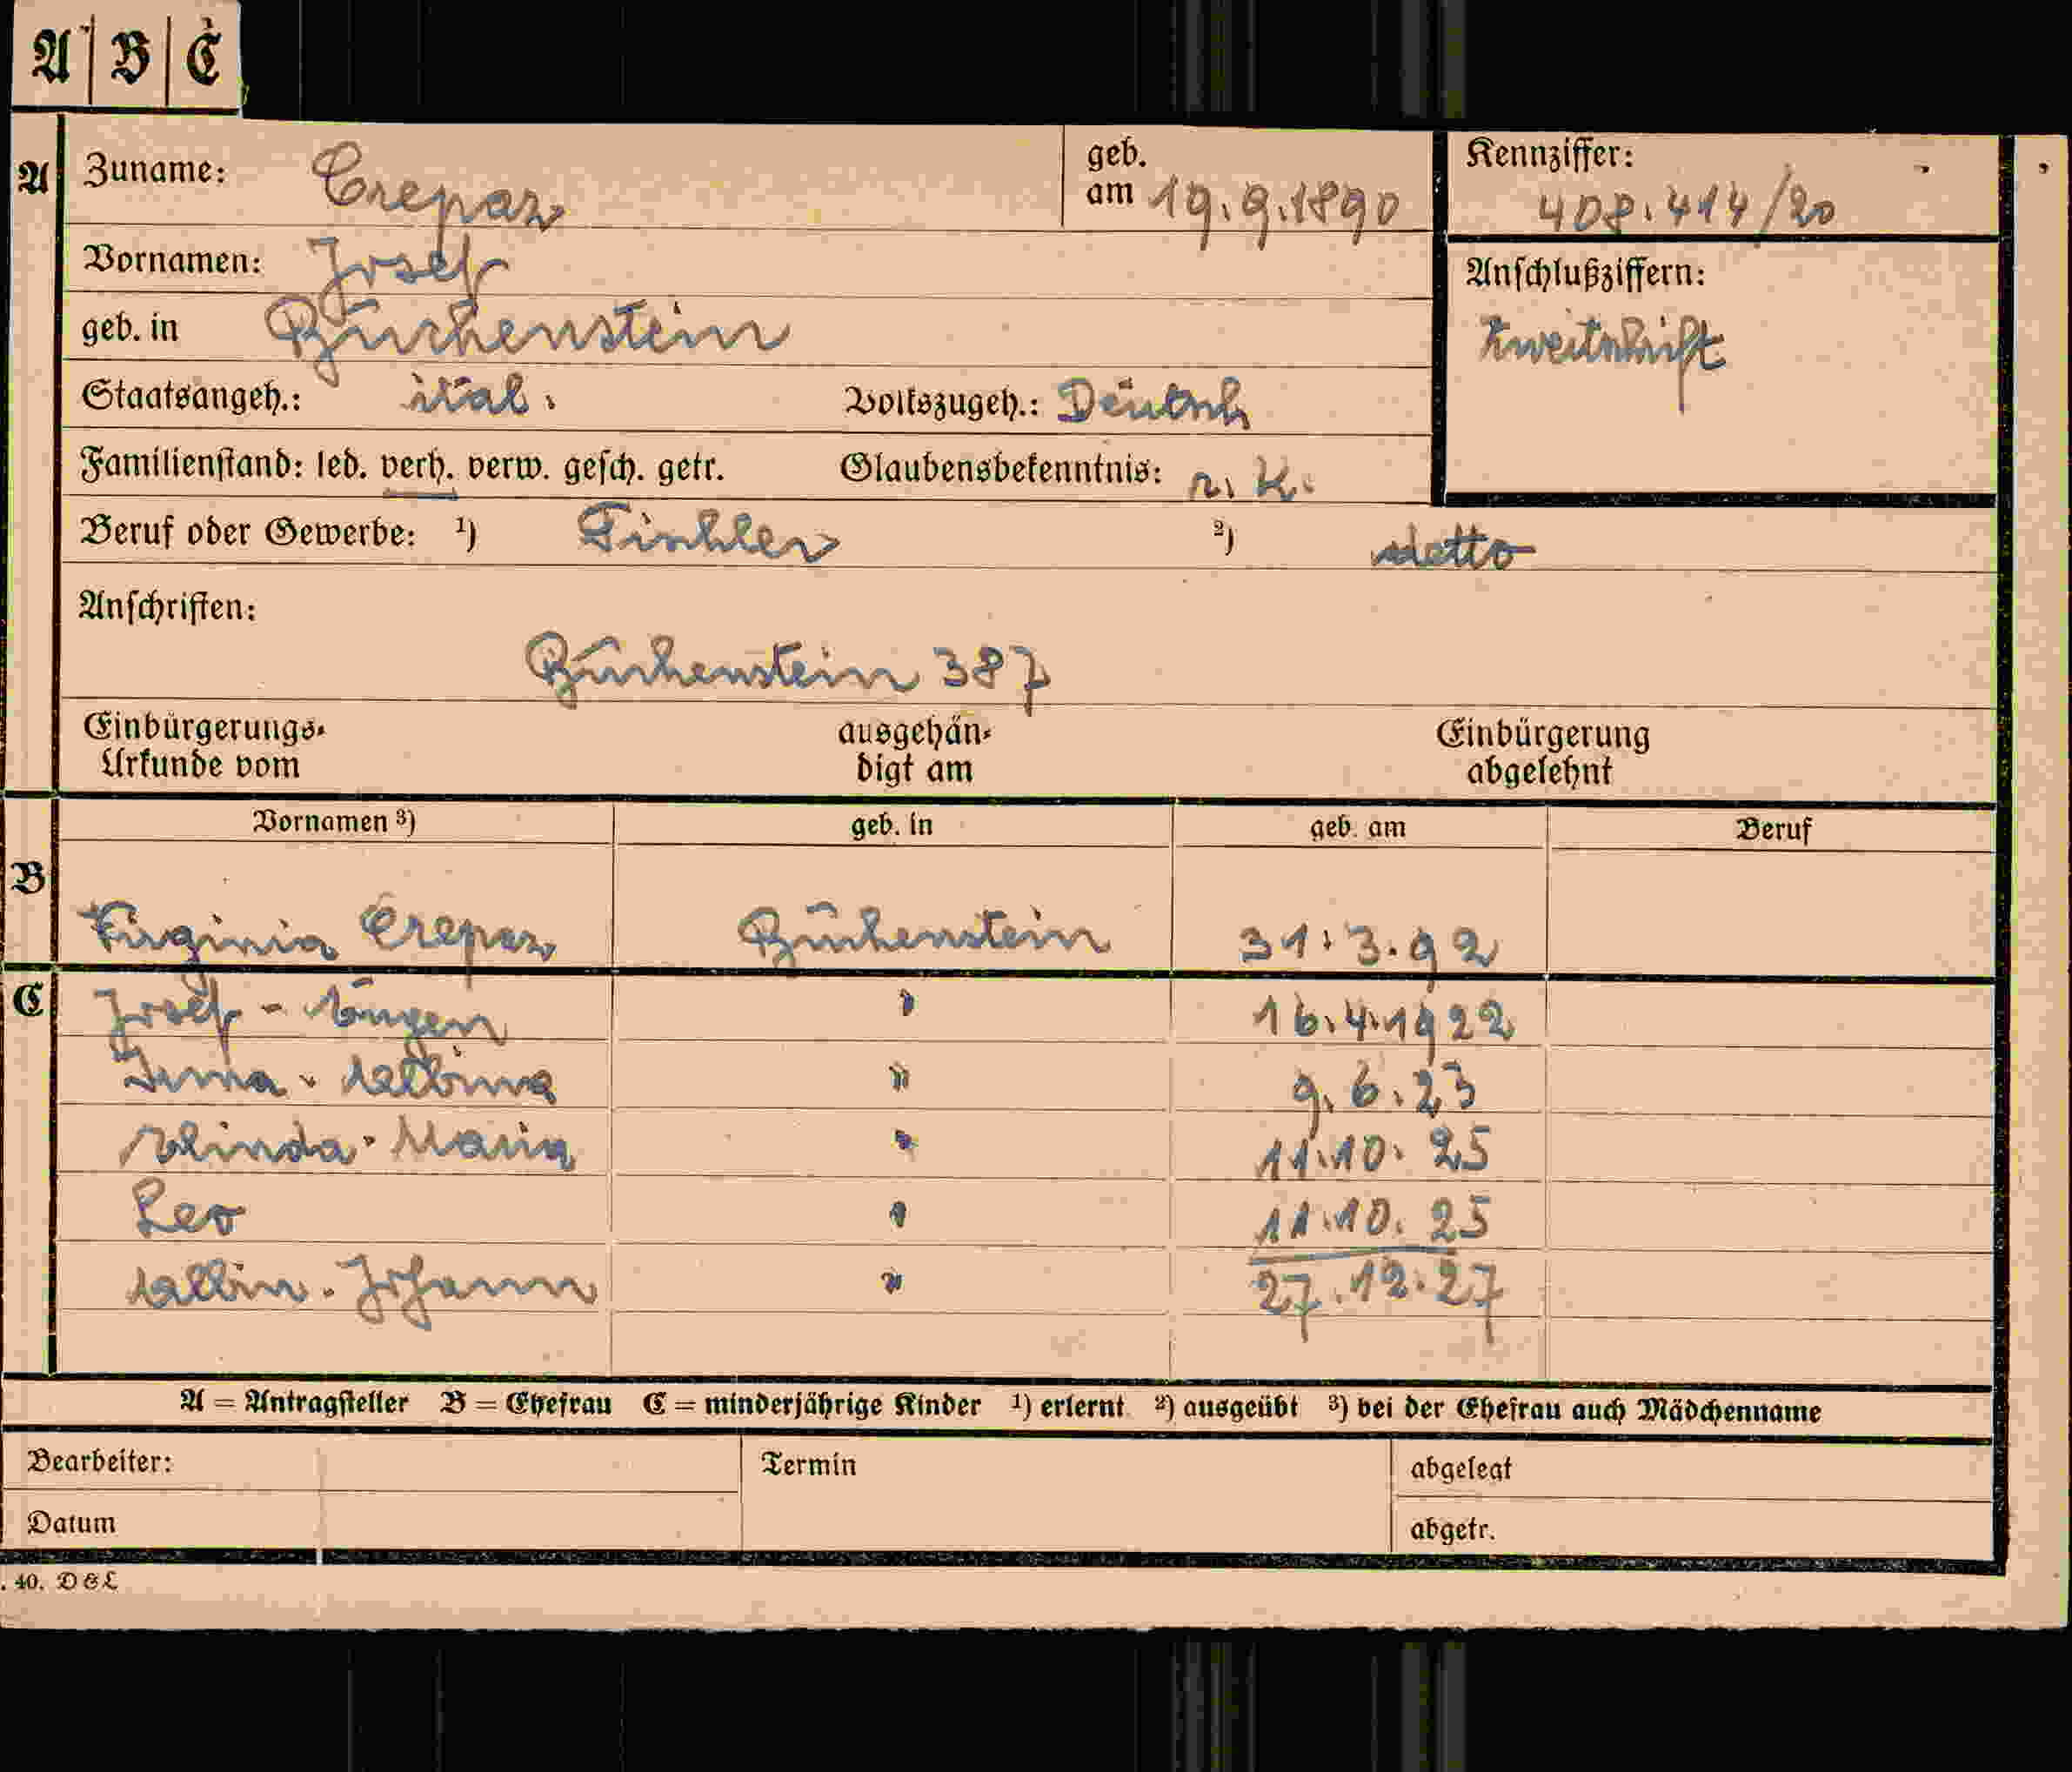 A | B | C
A Zuname: Crepaz geb. am 19.9.1890 Kennziffer: 408.414/20
Vornamen: Josef Anschlußziffern:
geb. in Buchenstein Zweitschrift
Staatsangeh.: ital. Volkszugeh.: Deutsch
Familienstand: led. verh. verw. gesch. getr. Glaubensbekenntnis: r. K.
Beruf oder Gewerbe: ¹) Tischler ²) detto
Anschriften:
Buchenstein 387
Einbürgerungs- ausgehän- Einbürgerung
Urkunde vom digt am abgelehnt
Vornamen ³) geb. in geb. am Beruf
B
Virginia Crepaz Buchenstein 31.3.92
C Josef - Eugen " 16.4.1922
Irma - Albina " 9.6.23
Linda - Maria " 11.10.25
Leo " 11.10.25
Albin - Johann " 27.12.27
A = Antragsteller B = Ehefrau C = minderjährige Kinder ¹) erlernt ²) ausgeübt ³) bei der Ehefrau auch Mädchenname
Bearbeiter: Termin abgelegt
Datum abgetr.
. 40. D & L